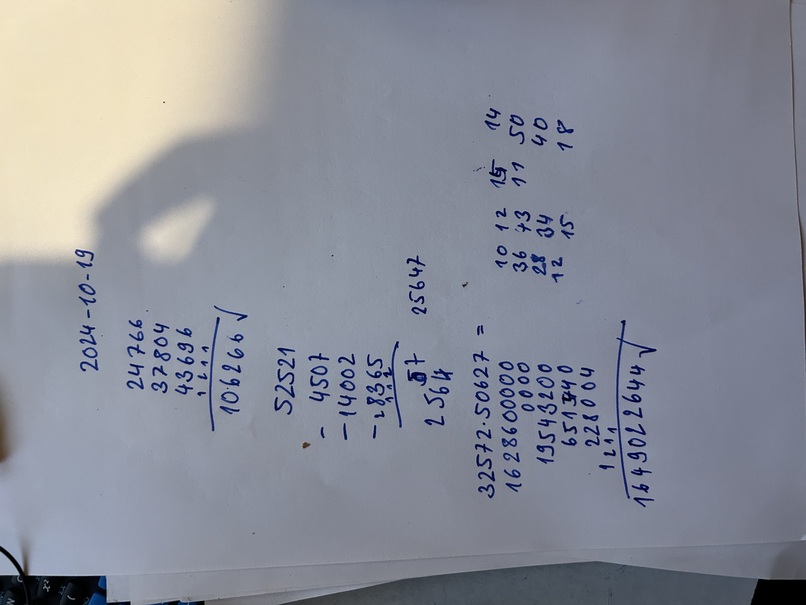 2024-10-19
24766
37804
43696
1211
106266 √
52521
- 4507
-14002
-28365
2564 7 25647
32572·50627 =
1628600000
0000
19543200
651440
228004
1211
1649022644 √
10 12 14
36 43 11 50
28 34 40
12 15 18